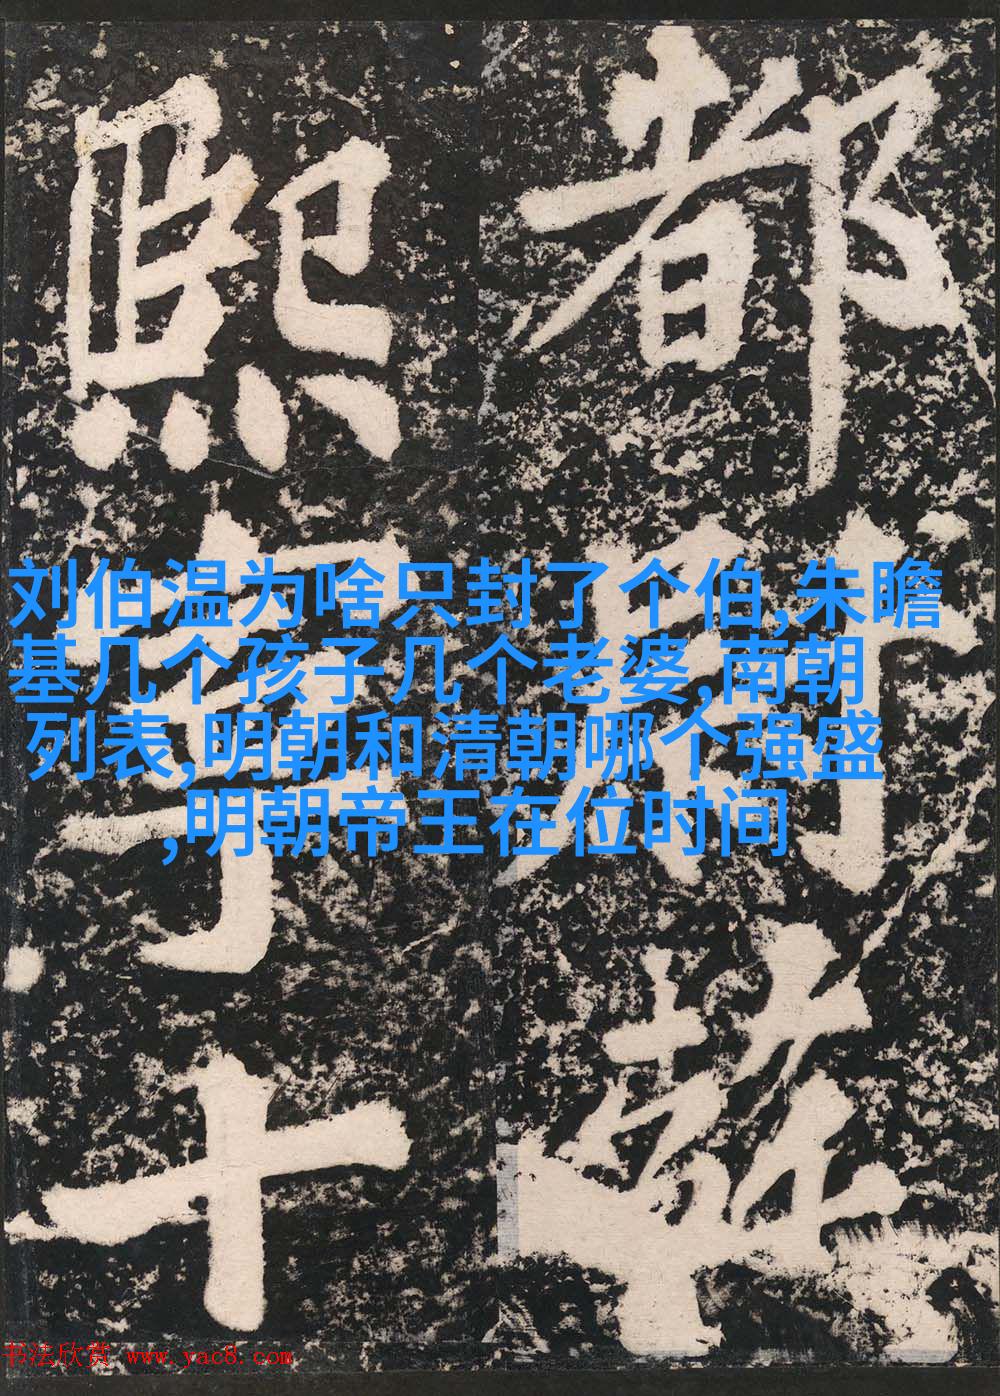 都尉
熙寧十
刘伯温为啥只封了个伯,朱瞻
基几个孩子几个老婆,南朝
列表,明朝和清朝哪个强盛
,明朝帝王在位时间
书法欣赏 www.yac8.com